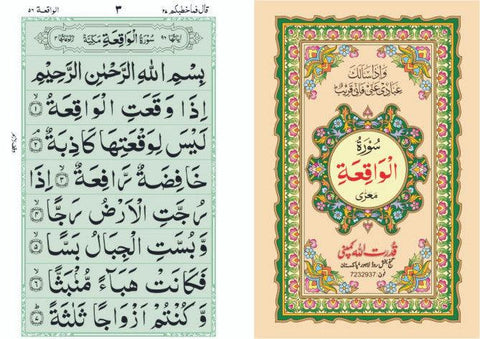 قال فما خطبكم ٢٧
٣
الواقعة ٥٦
سُوْرَةُ الْوَاقِعَةِ مَكِّيَّةٌ
بِسْمِ اللهِ الرَّحْمٰنِ الرَّحِيْمِ
اِذَا وَقَعَتِ الْوَاقِعَةُ ۙ ١
لَيْسَ لِوَقْعَتِهَا كَاذِبَةٌ ۘ ٢
خَافِضَةٌ رَّافِعَةٌ ۙ ٣ اِذَا
رُجَّتِ الْاَرْضُ رَجًّا ۙ ٤
وَّبُسَّتِ الْجِبَالُ بَسًّا ۙ ٥
فَكَانَتْ هَبَآءً مُّنْۢبَثًّا ۙ ٦
وَّكُنْتُمْ اَزْوَاجًا ثَلٰثَةً ؕ ٧
وَاِذَا سَاَلَكَ
عِبَادِیْ عَنِّیْ فَاِنِّیْ قَرِیْبٌ
سُوْرَةُ
الْوَاقِعَةِ
معرٰی
قدرت اللہ کمپنی
7232937 فون